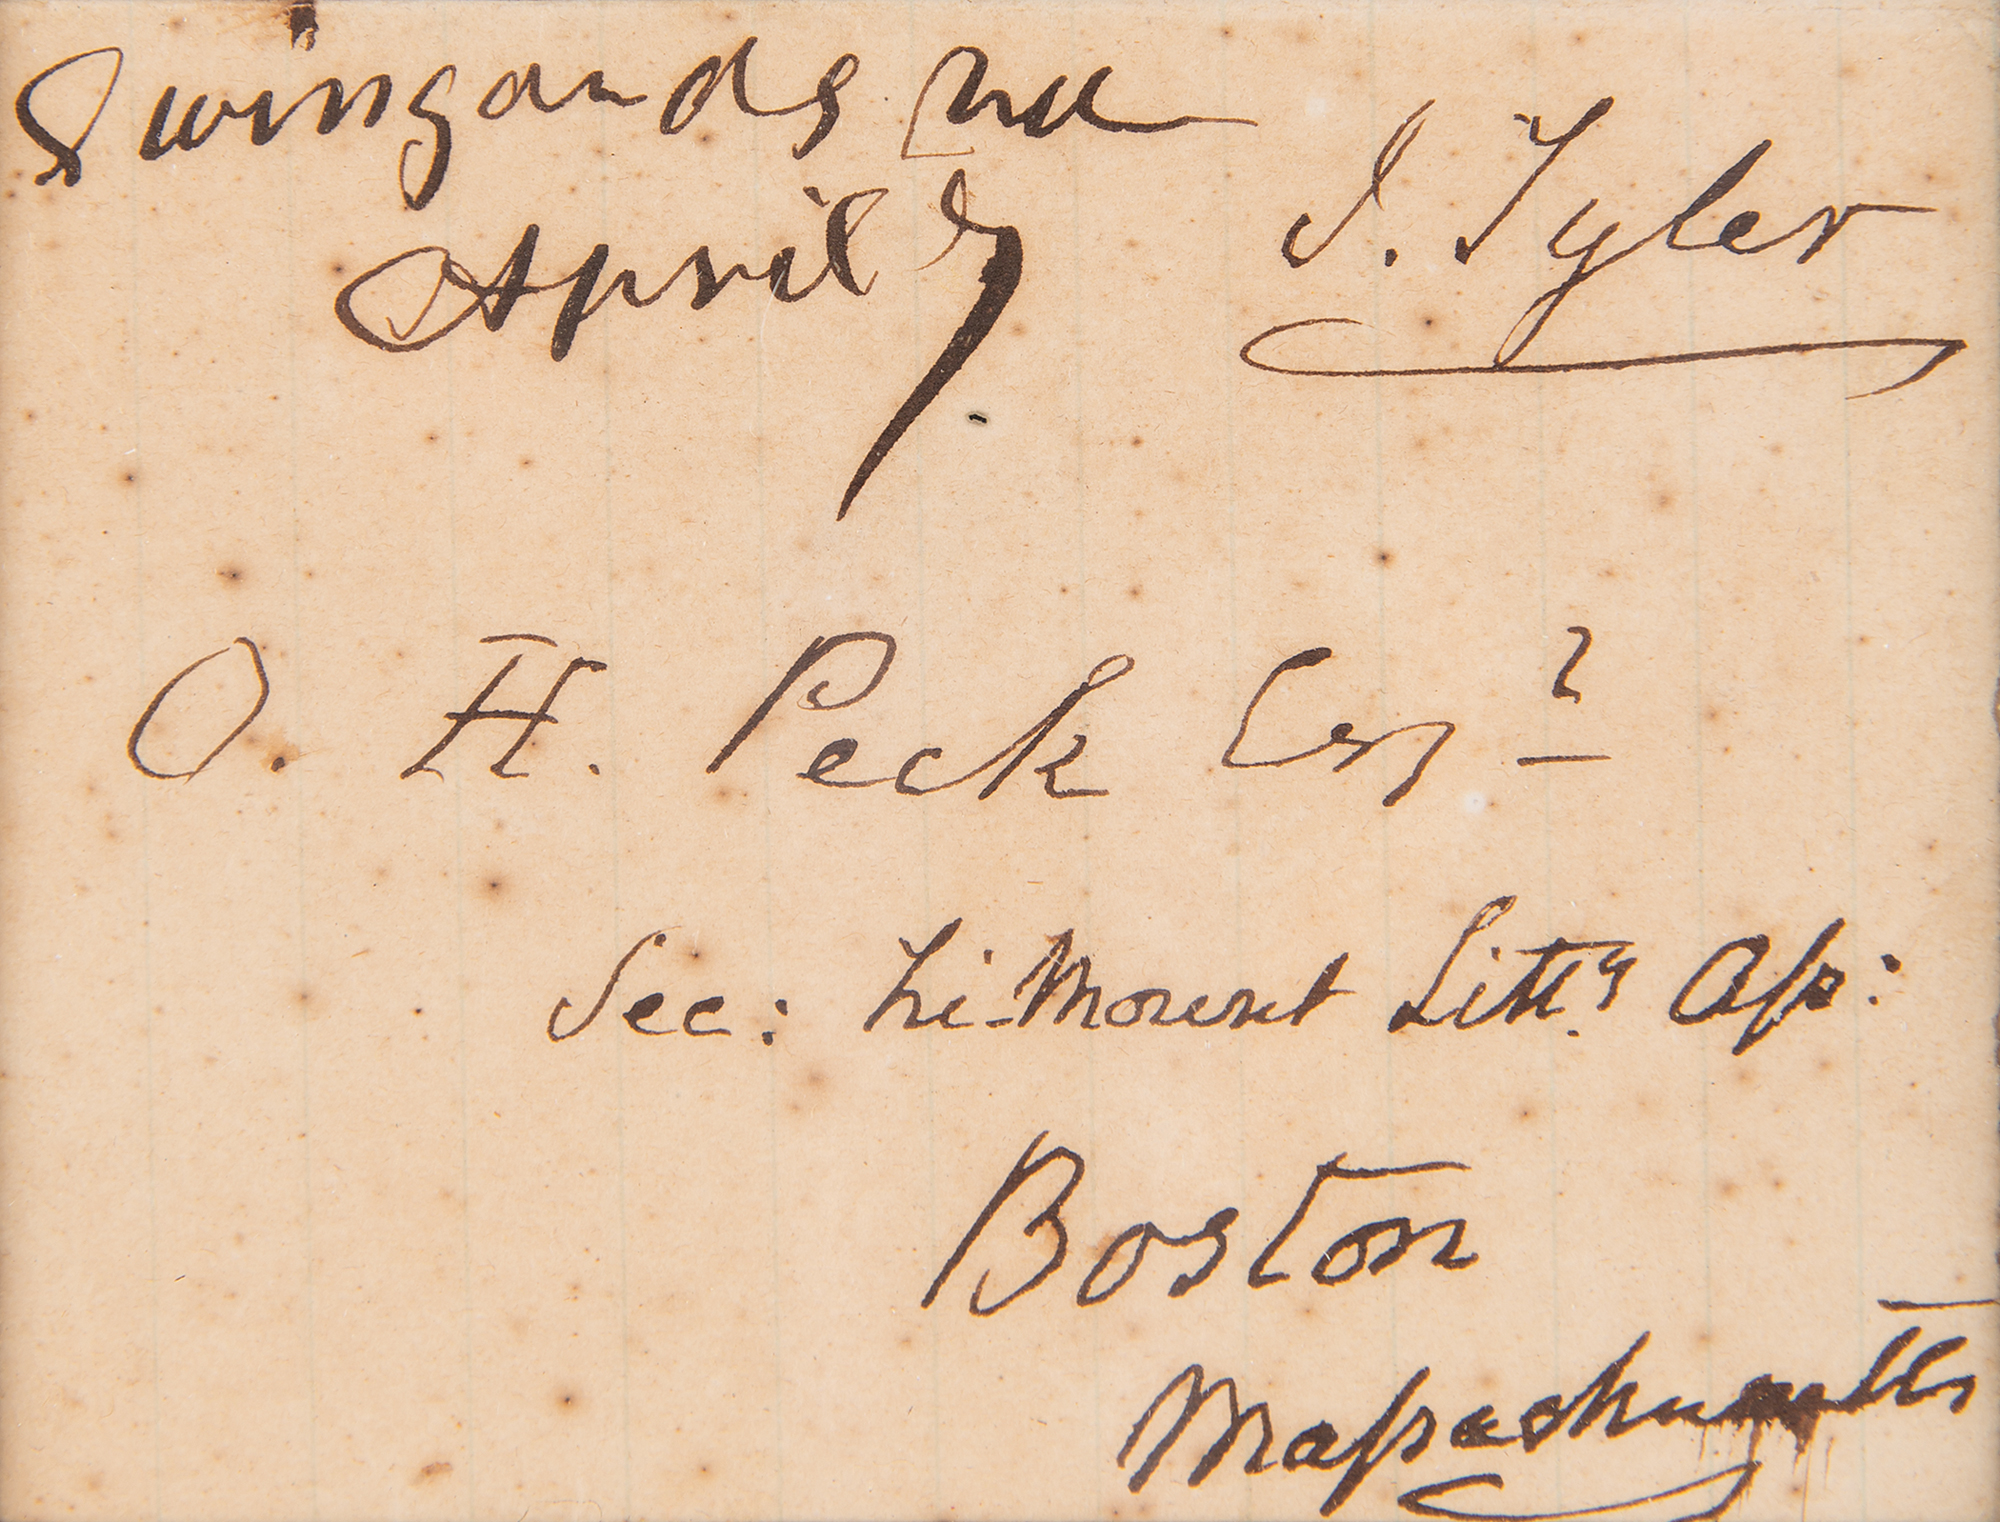 Swinyards Va
April 7
J. Tyler
O. H. Peck Esqr
Sec: Tri-Mount Litty Ass:
Boston
Massachusetts